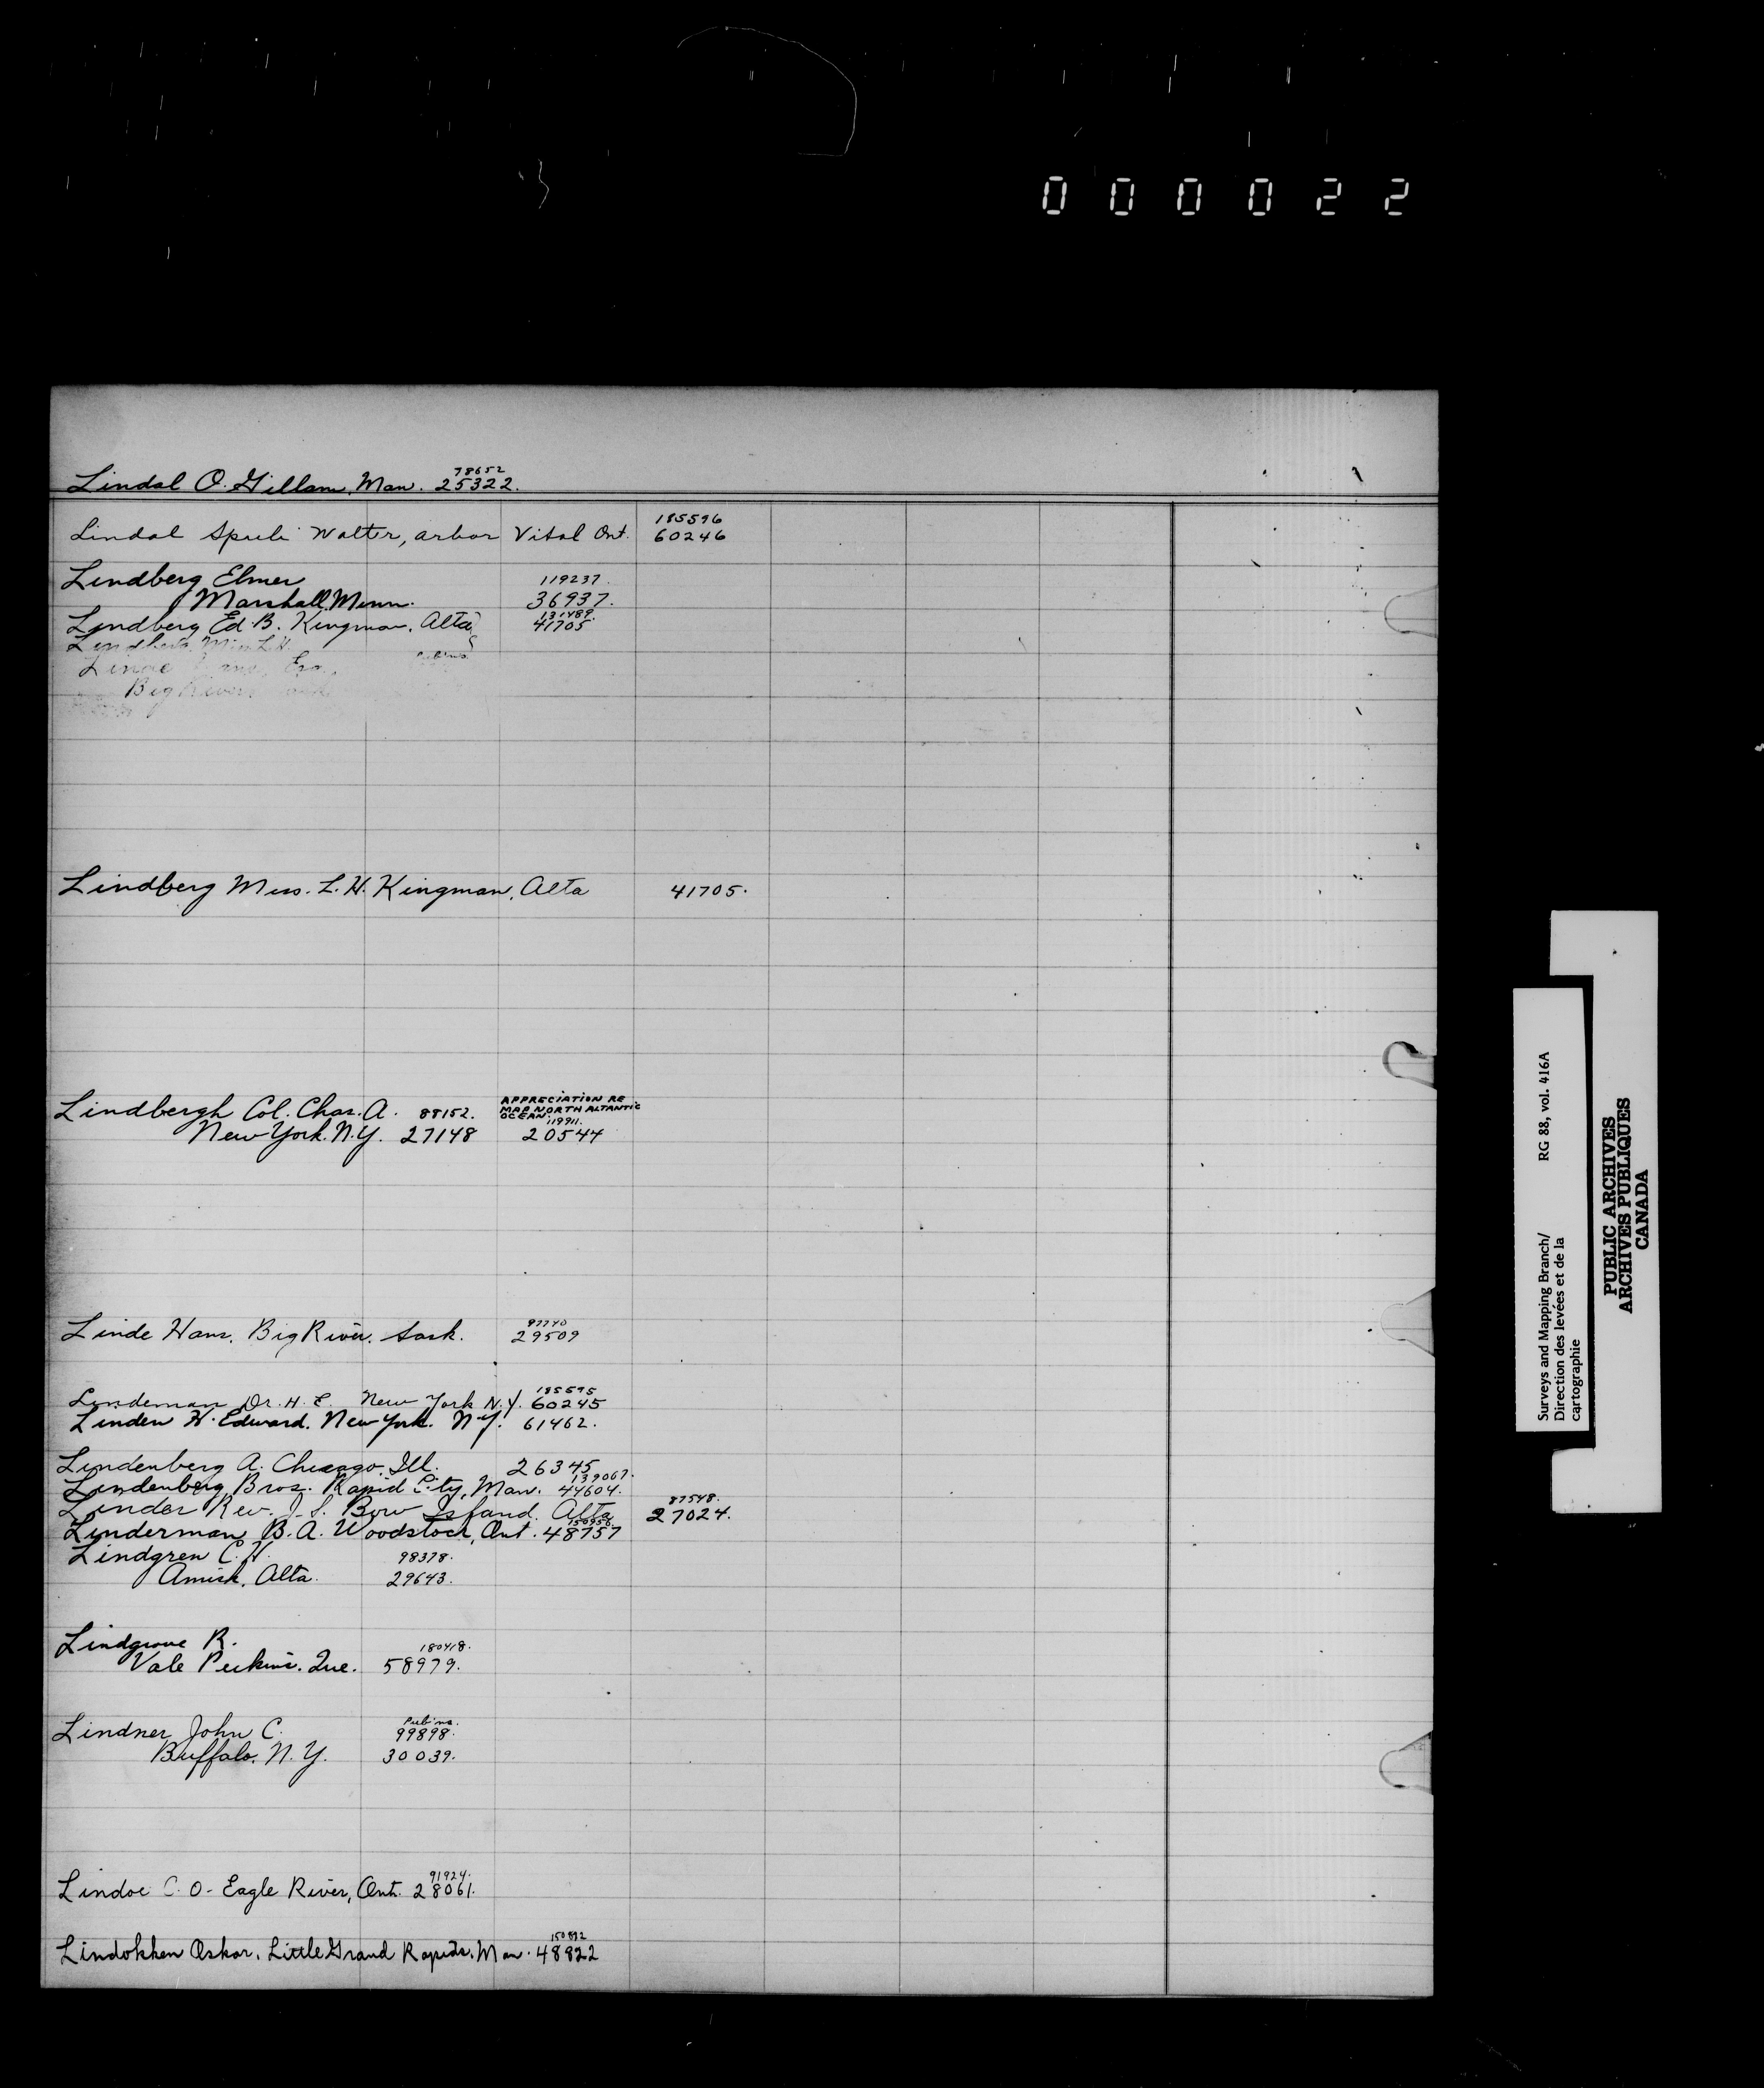 000022
78652
Lindal O. Gillam, Man. 25322.
185596
Lindal Walter, arbor Vital Ont. 60246
Lindberg Elmer 119237.
Marshall, Minn. 36937.
131489.
Lindberg Ed. B. Kingman, Alta 41705
Lindberg, Miss L.H.
Linde Hans, Esq., Pub'ns.
Big River, Sask.
Lindberg Miss. L. H. Kingman, Alta 41705.
APPRECIATION RE
MAP NORTH ALTANTIC
OCEAN.
Lindbergh Col. Chas. A. 88152. 119911.
New York. N.Y. 27148 20544
97740
Linde Hans. Big River. Sask. 29509
185595
Lindeman Dr. H. E. New York N.Y. 60245
Linden H. Edward. New York. N.Y. 61462.
Lindenberg A. Chicago, Ill. 26345
139067.
Lindenberg Bros. Rapid City, Man. 44604.
87548.
Linder Rev. J. S. Bow Island. Alta 27024.
150956
Linderman B. A. Woodstock, Ont. 48757
Lindgren C. H. 98378.
Amisk, Alta. 29643.
Lindgrove R. 180418.
Vale Perkins. Que. 58979.
Pub'ns.
Lindner John C. 99898.
Buffalo. N.Y. 30039.
91924.
Lindoe C. O- Eagle River, Ont. 28061.
150892
Lindokken Oskar. Little Grand Rapids. Man. 48822
Surveys and Mapping Branch/ RG 88, vol. 416A
Direction des levées et de la
cartographie
PUBLIC ARCHIVES
ARCHIVES PUBLIQUES
CANADA